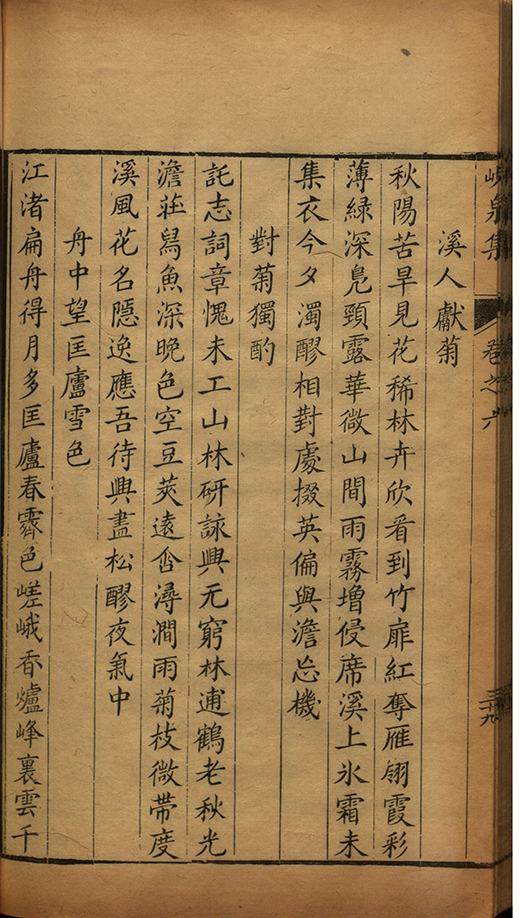 峴泉集 卷之六
溪人獻菊
秋陽苦旱見花稀林卉欣看到竹扉紅奪雁翎霞彩
薄綠深鳧頸露華微山間雨霧增侵席溪上氷霜未
集衣今夕濁醪相對處掇英偏與澹忘機
對菊獨酌
託志詞章愧未工山林研詠興无窮林逋鶴老秋光
澹莊舃魚深晚色空豆莢遠畬潯澗雨菊枝微帶度
溪風花名隱逸應吾待興盡松醪夜氣中
舟中望匡廬雪色
江渚扁舟得月多匡廬春霽色嵯峨香爐峰裏雲千